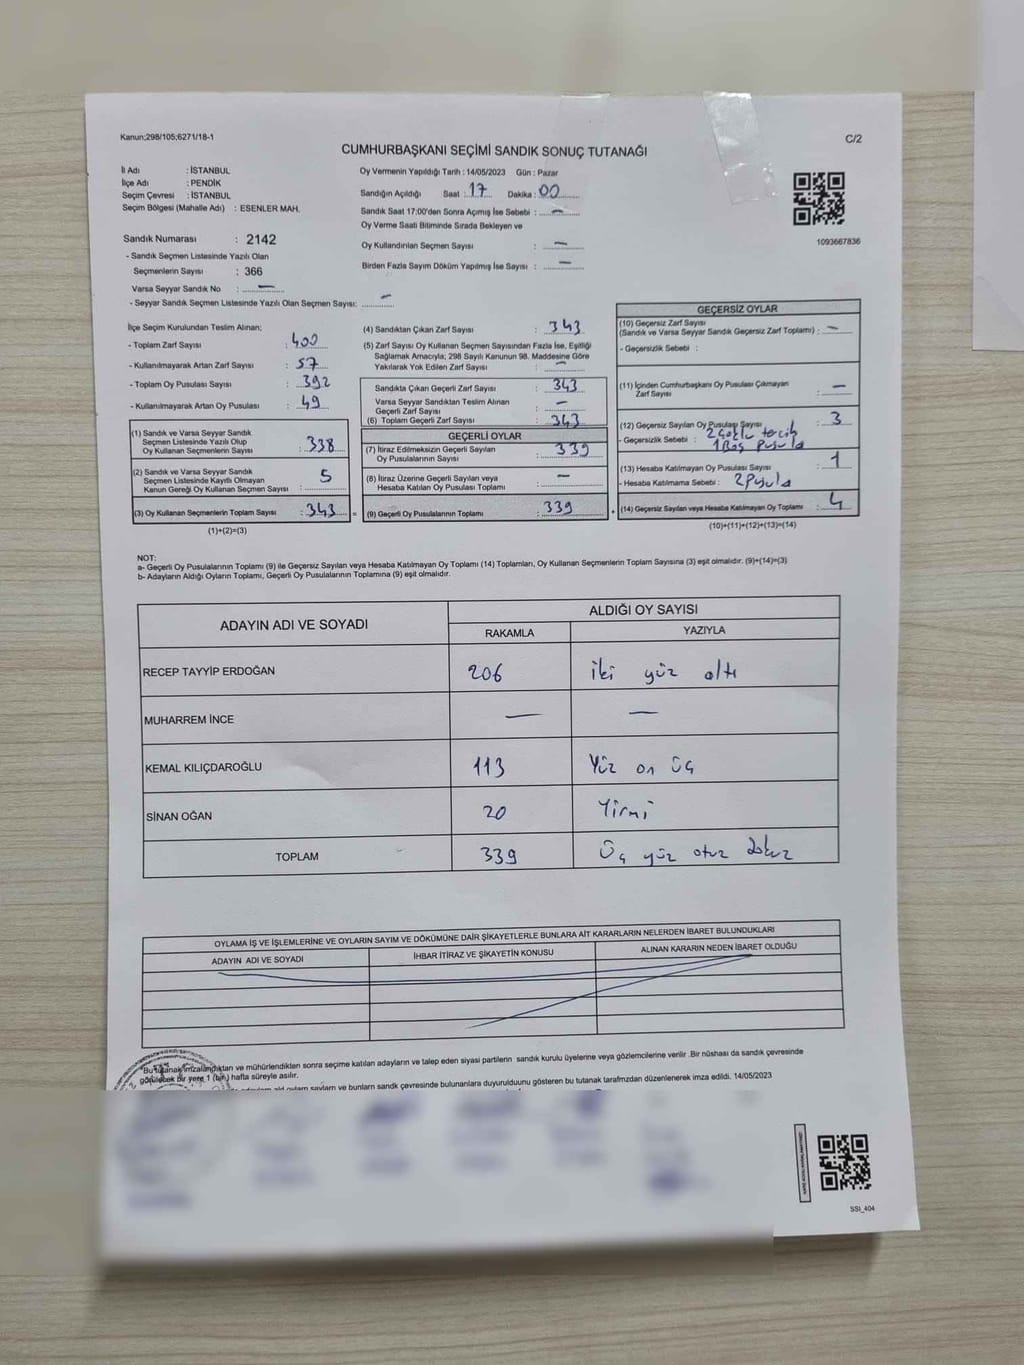 Kanun:298/105;6271/18-1
C/2
CUMHURBAŞKANI SEÇİMİ SANDIK SONUÇ TUTANAĞI
İl Adı : İSTANBUL
İlçe Adı : PENDİK
Seçim Çevresi : İSTANBUL
Seçim Bölgesi (Mahalle Adı) : ESENLER MAH.
Sandık Numarası : 2142
- Sandık Seçmen Listesinde Yazılı Olan
Seçmenlerin Sayısı : 366
Varsa Seyyar Sandık No : —
- Seyyar Sandık Seçmen Listesinde Yazılı Olan Seçmen Sayısı: —
Oy Vermenin Yapıldığı Tarih : 14/05/2023 Gün : Pazar
Sandığın Açıldığı Saat : 17 Dakika : 00
Sandık Saat 17:00'den Sonra Açılmış İse Sebebi : —
Oy Verme Saati Bitiminde Sırada Bekleyen ve
Oy Kullandırılan Seçmen Sayısı : —
Birden Fazla Sayım Döküm Yapılmış İse Sayısı : —
1093667836
İlçe Seçim Kurulundan Teslim Alınan;
- Toplam Zarf Sayısı : 400
- Kullanılmayarak Artan Zarf Sayısı : 57
- Toplam Oy Pusulası Sayısı : 392
- Kullanılmayarak Artan Oy Pusulası : 49
(1) Sandık ve Varsa Seyyar Sandık
Seçmen Listesinde Yazılı Olup
Oy Kullanan Seçmenlerin Sayısı : 338
(2) Sandık ve Varsa Seyyar Sandık
Seçmen Listesinde Kayıtlı Olmayan
Kanun Gereği Oy Kullanan Seçmen Sayısı : 5
(3) Oy Kullanan Seçmenlerin Toplam Sayısı : 343 =
(1)+(2)=(3)
(4) Sandıktan Çıkan Zarf Sayısı : 343
(5) Zarf Sayısı Oy Kullanan Seçmen Sayısından Fazla İse, Eşitliği
Sağlamak Amacıyla; 298 Sayılı Kanunun 98. Maddesine Göre
Yakılarak Yok Edilen Zarf Sayısı : —
Sandıkta Çıkan Geçerli Zarf Sayısı : 343
Varsa Seyyar Sandıktan Teslim Alınan
Geçerli Zarf Sayısı : —
(6) Toplam Geçerli Zarf Sayısı : 343
GEÇERLİ OYLAR
(7) İtiraz Edilmeksizin Geçerli Sayılan
Oy Pusulalarının Sayısı : 339
(8) İtiraz Üzerine Geçerli Sayılan veya
Hesaba Katılan Oy Pusulaları Toplamı : —
(9) Geçerli Oy Pusulalarının Toplamı : 339 +
GEÇERSİZ OYLAR
(10) Geçersiz Zarf Sayısı
(Sandık ve Varsa Seyyar Sandık Geçersiz Zarf Toplamı) : —
- Geçersizlik Sebebi :
(11) İçinden Cumhurbaşkanı Oy Pusulası Çıkmayan
Zarf Sayısı : —
(12) Geçersiz Sayılan Oy Pusulası Sayısı : 3
- Geçersizlik Sebebi : 2 Çoklu tercih
1 Boş Pusula
(13) Hesaba Katılmayan Oy Pusulası Sayısı : 1
- Hesaba Katılmama Sebebi : 2 Pusula
(14) Geçersiz Sayılan veya Hesaba Katılmayan Oy Toplamı : 4
(10)+(11)+(12)+(13)=(14)
NOT:
a- Geçerli Oy Pusulalarının Toplamı (9) ile Geçersiz Sayılan veya Hesaba Katılmayan Oy Toplamı (14) Toplamları, Oy Kullanan Seçmenlerin Toplam Sayısına (3) eşit olmalıdır. (9)+(14)=(3)
b- Adayların Aldığı Oyların Toplamı, Geçerli Oy Pusulalarının Toplamına (9) eşit olmalıdır.
ADAYIN ADI VE SOYADI
ALDIĞI OY SAYISI
RAKAMLA YAZIYLA
RECEP TAYYİP ERDOĞAN 206 iki yüz altı
MUHARREM İNCE — —
KEMAL KILIÇDAROĞLU 113 Yüz on üç
SİNAN OĞAN 20 Yirmi
TOPLAM 339 Üç yüz otuz dokuz
OYLAMA İŞ VE İŞLEMLERİNE VE OYLARIN SAYIM VE DÖKÜMÜNE DAİR ŞİKAYETLERLE BUNLARA AİT KARARLARIN NELERDEN İBARET BULUNDUKLARI
ADAYIN ADI VE SOYADI İHBAR İTİRAZ VE ŞİKAYETİN KONUSU ALINAN KARARIN NEDEN İBARET OLDUĞU
Bu tutanak imzalandıktan ve mühürlendikten sonra seçime katılan adayların ve talep eden siyasi partilerin sandık kurulu üyelerine veya gözlemcilerine verilir .Bir nüshası da sandık çevresinde
görülebilecek bir yere 1 (bir) hafta süreyle asılır.
sayıların ve bunların sandk çevresinde bulunanlara duyurulduunu gösteren bu tutanak tarafmzdan düzenlenerek imza edildi. 14/05/2023
SSI_404